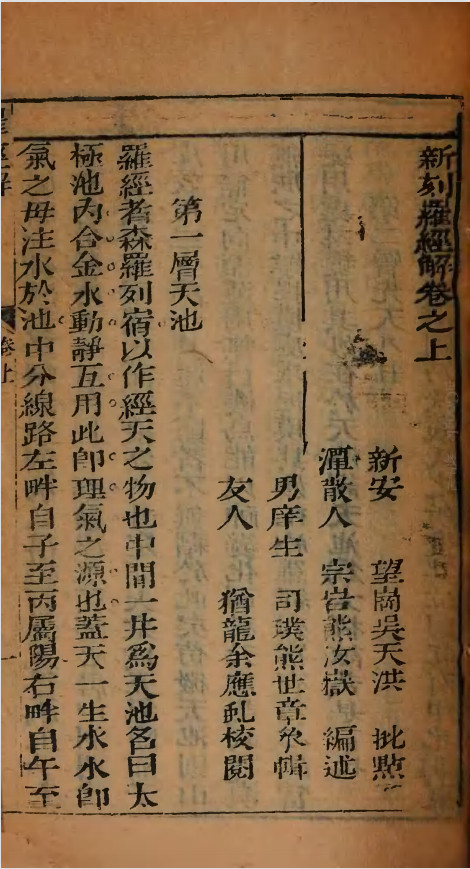 新刻羅經解卷之上
新安 望崗吳天洪 批㸃
潭散人 宗岩熊汝嶽 編述
男庠生 司璞熊世章 輯
友人 猶龍余應虬校閱
第一層天池
羅經者森羅列宿以作經天之物也中間一井爲天池名曰太
極池内合金水動靜互用此卽理氣之源也蓋天一生水水卽
氣之母注水於池中分線路左畔自子至丙屬陽右畔自午至
卷上
一